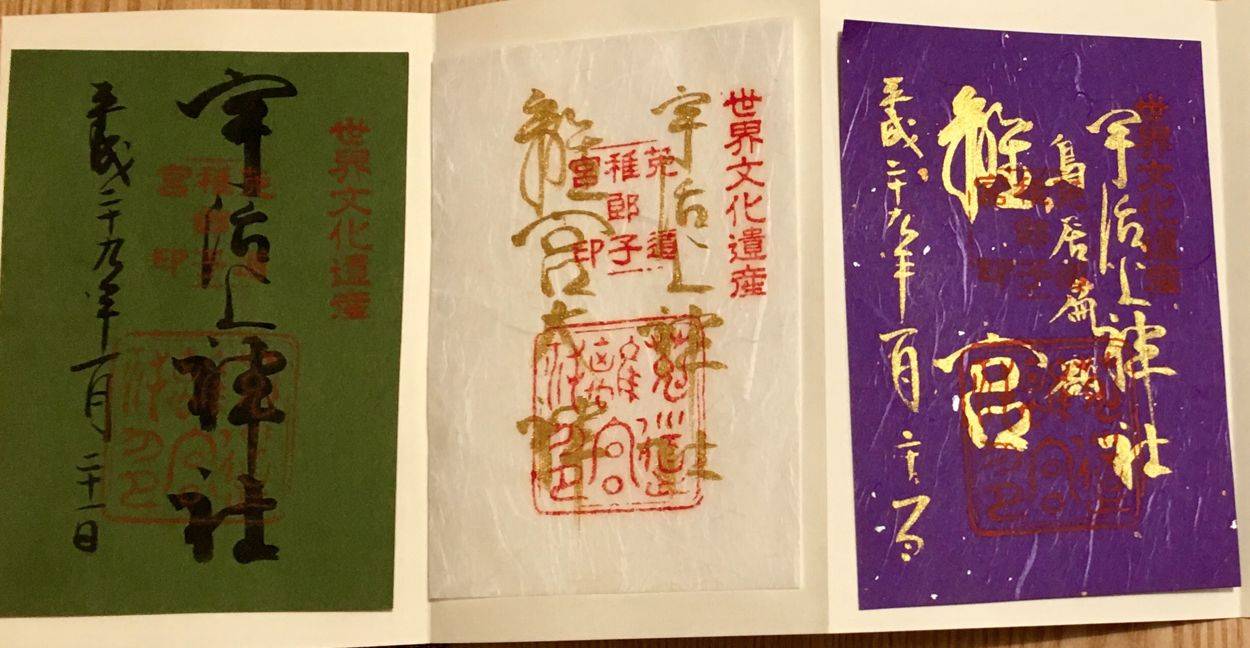 世界文化遺産
菟道
稚郎子
宮印
宇治上神社
平成二十九年一月二十一日
世界文化遺産
宇治上神社
菟道
稚郎子
宮印
離宮大神
世界文化遺産
宇治上神社
鳥居扁額
離宮
平成二十九年一月